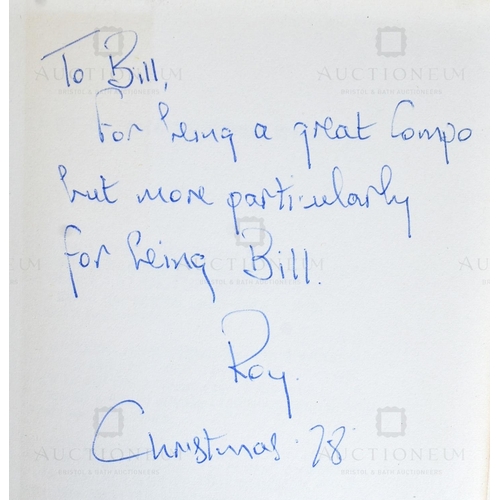 To Bill,
For being a great Compo
but more particularly
for being Bill.
Roy.
Christmas. 78.
AUCTIONEUM
BRISTOL & BATH AUCTIONEERS